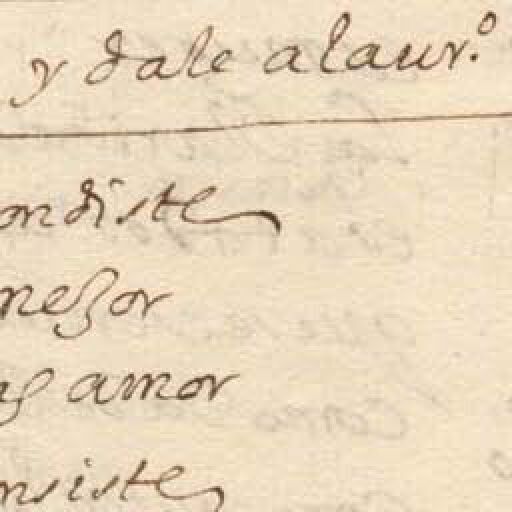 y dale a laur.º
ondiste
mejor
amor
nsiste